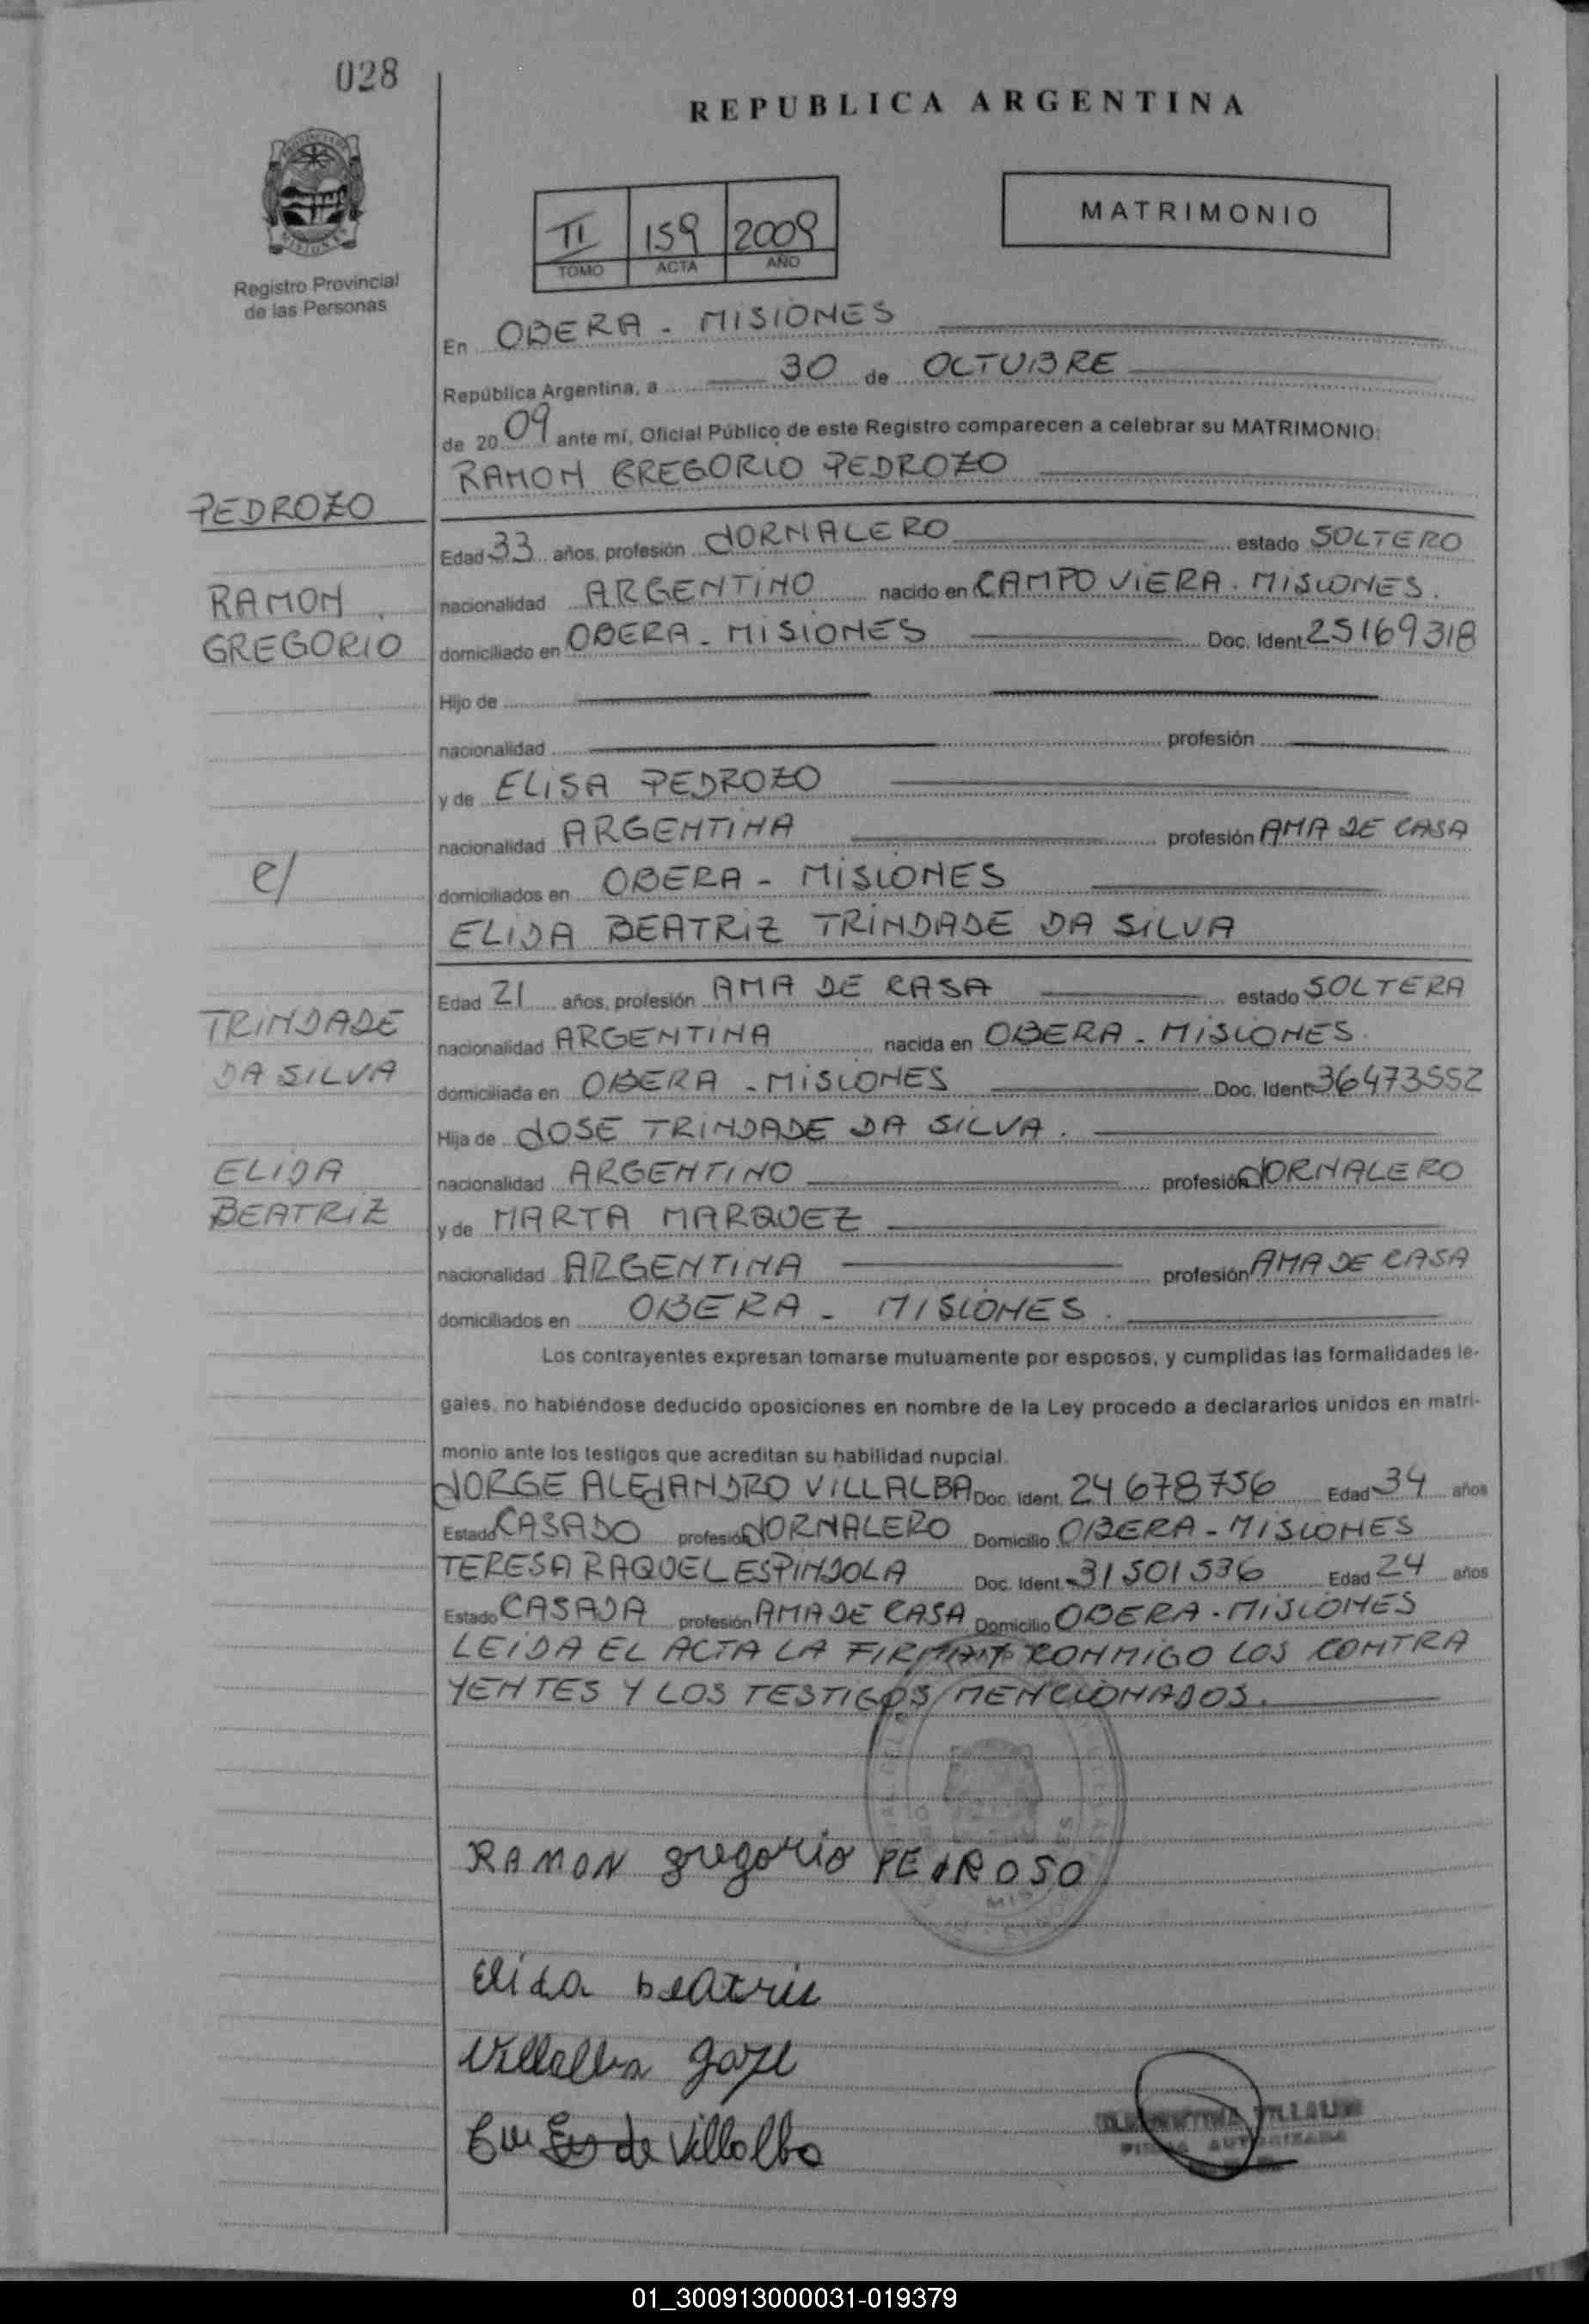 028
REPUBLICA ARGENTINA
MATRIMONIO
II 159 2009
TOMO ACTA AÑO
Registro Provincial
de las Personas
En OBERA - MISIONES
República Argentina, a 30 de OCTUBRE
de 20 09 ante mí, Oficial Público de este Registro comparecen a celebrar su MATRIMONIO:
RAMON GREGORIO PEDROZO
PEDROZO
Edad 33 años, profesión JORNALERO estado SOLTERO
RAMON
nacionalidad ARGENTINO nacido en CAMPO VIERA - MISIONES.
GREGORIO
domiciliado en OBERA - MISIONES Doc. Ident. 25169318
Hijo de
nacionalidad profesión
y de ELISA PEDROZO
nacionalidad ARGENTINA profesión AMA DE CASA
c/
domiciliados en OBERA - MISIONES
ELIDA BEATRIZ TRINDADE DA SILVA
Edad 21 años, profesión AMA DE CASA estado SOLTERA
TRINDADE
nacionalidad ARGENTINA nacida en OBERA - MISIONES.
DA SILVA
domiciliada en OBERA - MISIONES Doc. Ident. 36473552
Hija de JOSE TRINDADE DA SILVA.
ELIDA
nacionalidad ARGENTINO profesión JORNALERO
BEATRIZ
y de MARTA MARQUEZ
nacionalidad ARGENTINA profesión AMA DE CASA
domiciliados en OBERA - MISIONES.
Los contrayentes expresan tomarse mutuamente por esposos, y cumplidas las formalidades le-
gales, no habiéndose deducido oposiciones en nombre de la Ley procedo a declararlos unidos en matri-
monio ante los testigos que acreditan su habilidad nupcial.
JORGE ALEJANDRO VILLALBA Doc. Ident. 24678756 Edad 34 años
Estado CASADO profesión JORNALERO Domicilio OBERA - MISIONES
TERESA RAQUEL ESPINDOLA Doc. Ident. 31501536 Edad 24 años
Estado CASADA profesión AMA DE CASA Domicilio OBERA - MISIONES
LEIDA EL ACTA LA FIRMAN CONMIGO LOS CONTRA
YENTES Y LOS TESTIGOS MENCIONADOS.
RAMON gregorio PEdROSO
Elida beatris
Villalba
de Villalba
01_300913000031-019379